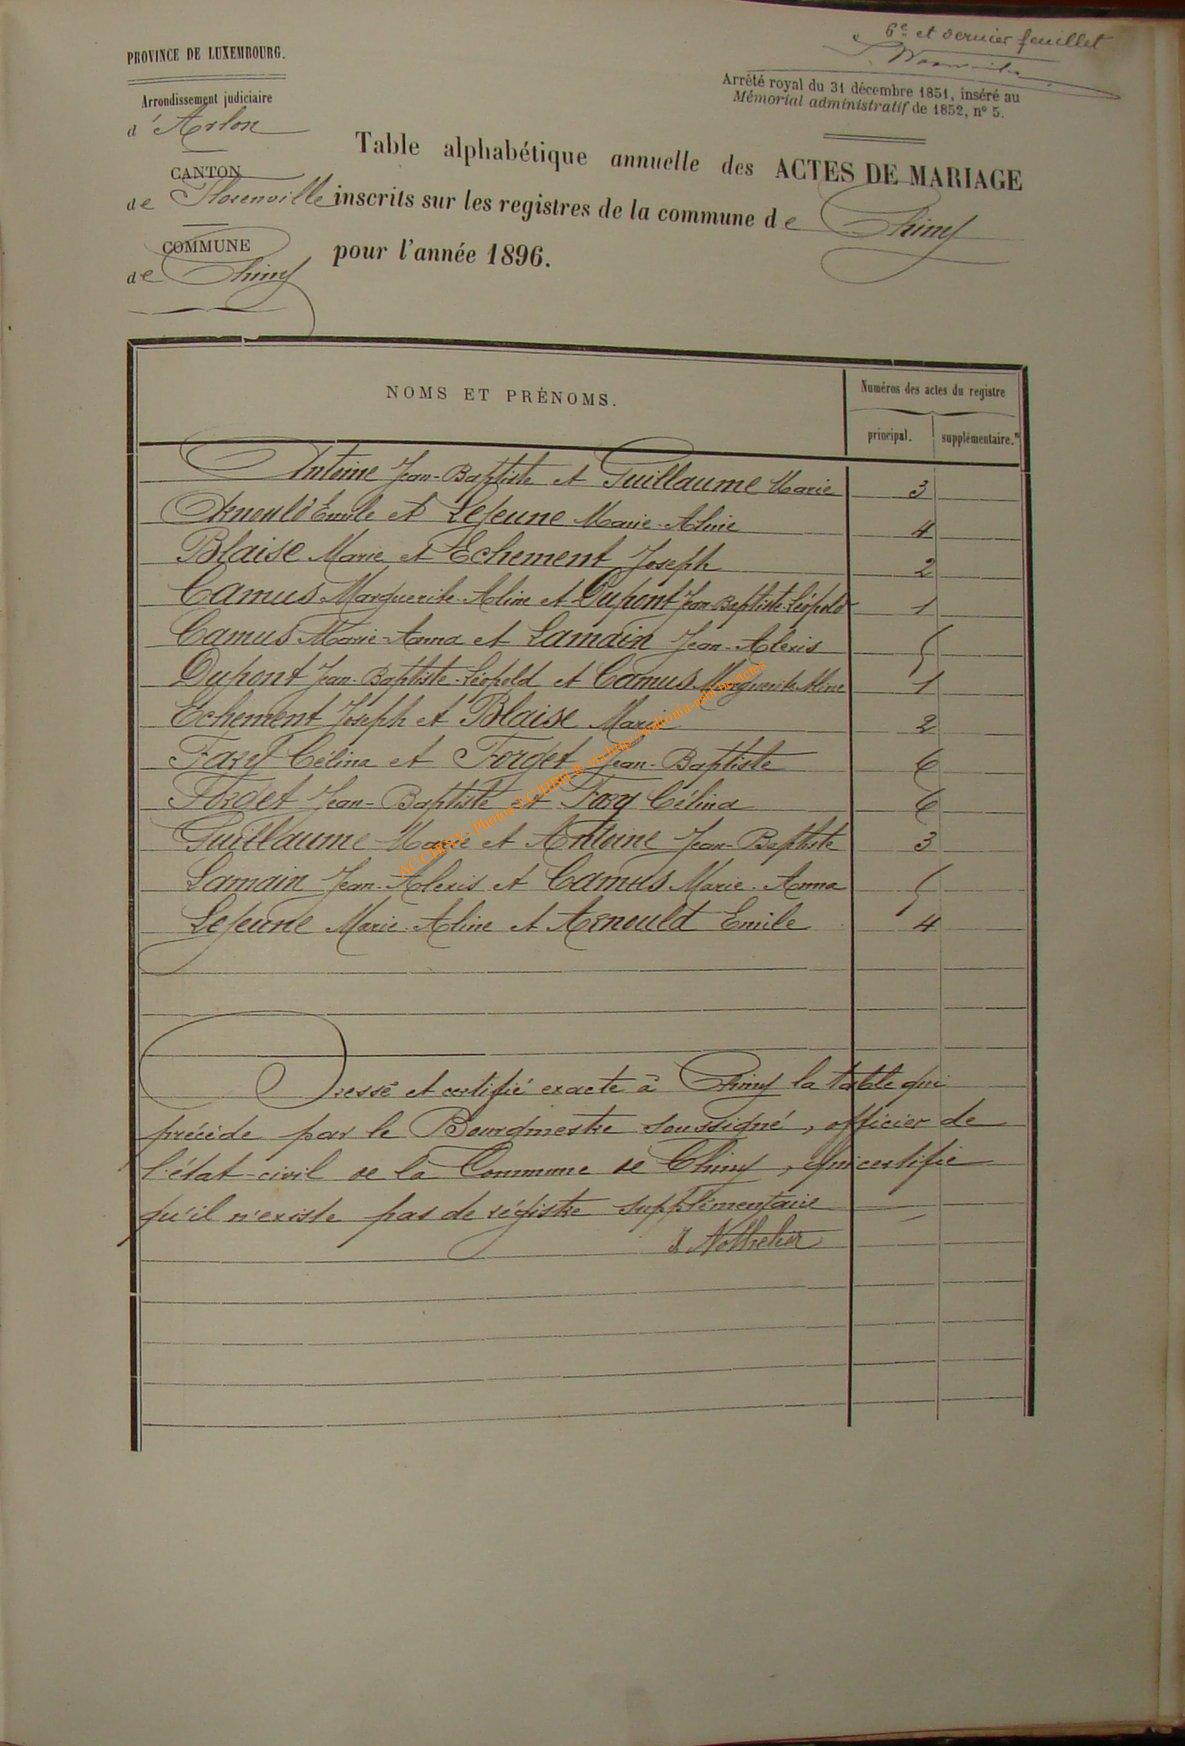 6e et dernier feuillet
PROVINCE DE LUXEMBOURG.
Arrêté royal du 31 décembre 1851, inséré au
Mémorial administratif de 1852, n° 5.
Arrondissement judiciaire
d'Arlon
CANTON
de Florenville
COMMUNE
de Chiny
Table alphabétique annuelle des ACTES DE MARIAGE
inscrits sur les registres de la commune de Chiny
pour l'année 1896.
NOMS ET PRÉNOMS.
Numéros des actes du registre
principal. supplémentaire.
Antoine Jean-Baptiste et Guillaume Marie 3
Arnould Emile et Lejeune Marie-Aline 4
Blaise Marie et Echement Joseph 2
Camus Marguerite-Aline et Dupont Jean-Baptiste-Léopold 1
Camus Marie-Anna et Lamain Jean-Alexis 5
Dupont Jean-Baptiste-Léopold et Camus Marguerite Aline 1
Echement Joseph et Blaise Marie 2
Fary Célina et Forget Jean-Baptiste 6
Forget Jean-Baptiste et Fary Célina 6
Guillaume Marie et Antoine Jean-Baptiste 3
Lamain Jean-Alexis et Camus Marie-Anna 5
Lejeune Marie-Aline et Arnould Emile 4
Dressé et certifié exacte à Chiny la table qui
précède par le Bourgmestre soussigné, officier de
l'état-civil de la Commune de Chiny, qui certifie
qu'il n'existe pas de régistre supplémentaire